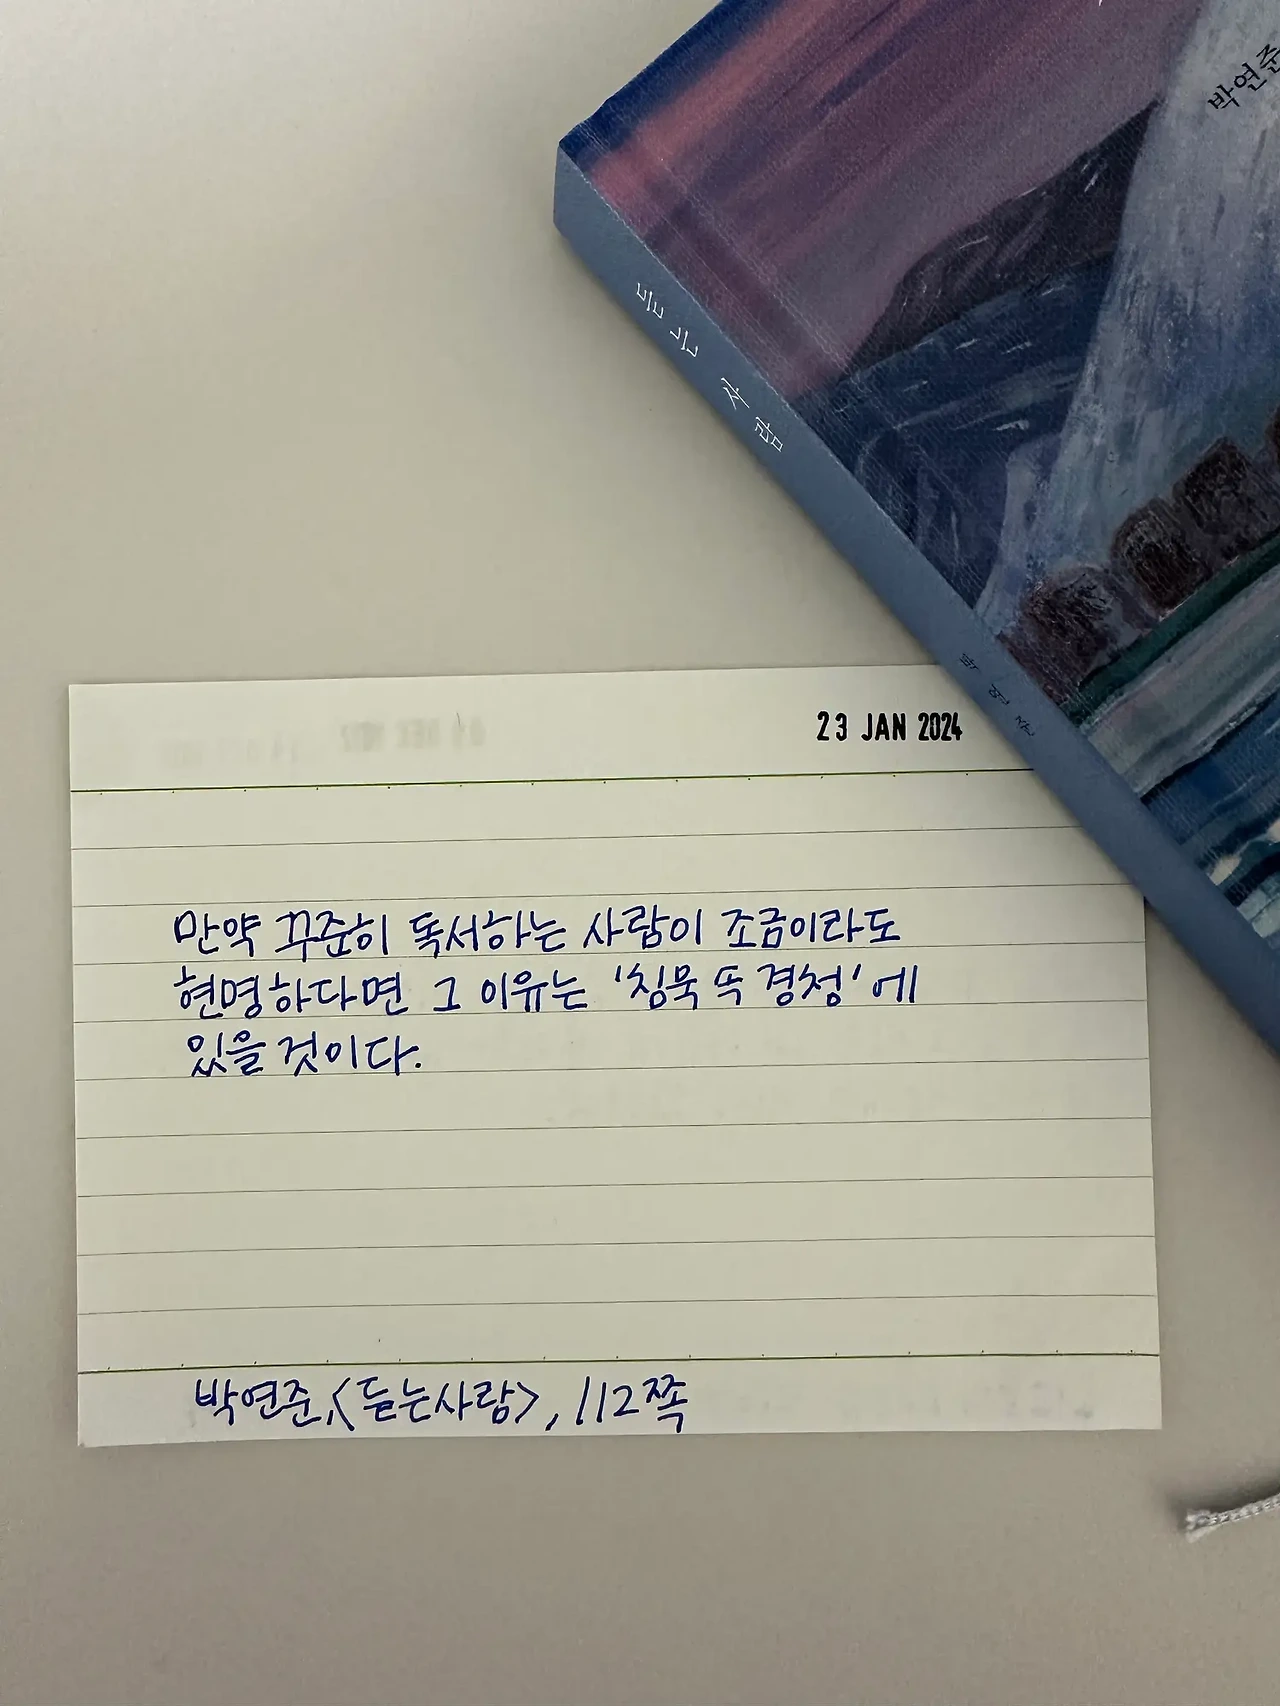 박연준
듣는 사람
박연준
23 JAN 2024
만약 꾸준히 독서하는 사람이 조금이라도
현명하다면 그 이유는 '침묵 속 경청'에
있을 것이다.
박연준,<듣는사람>, 112쪽